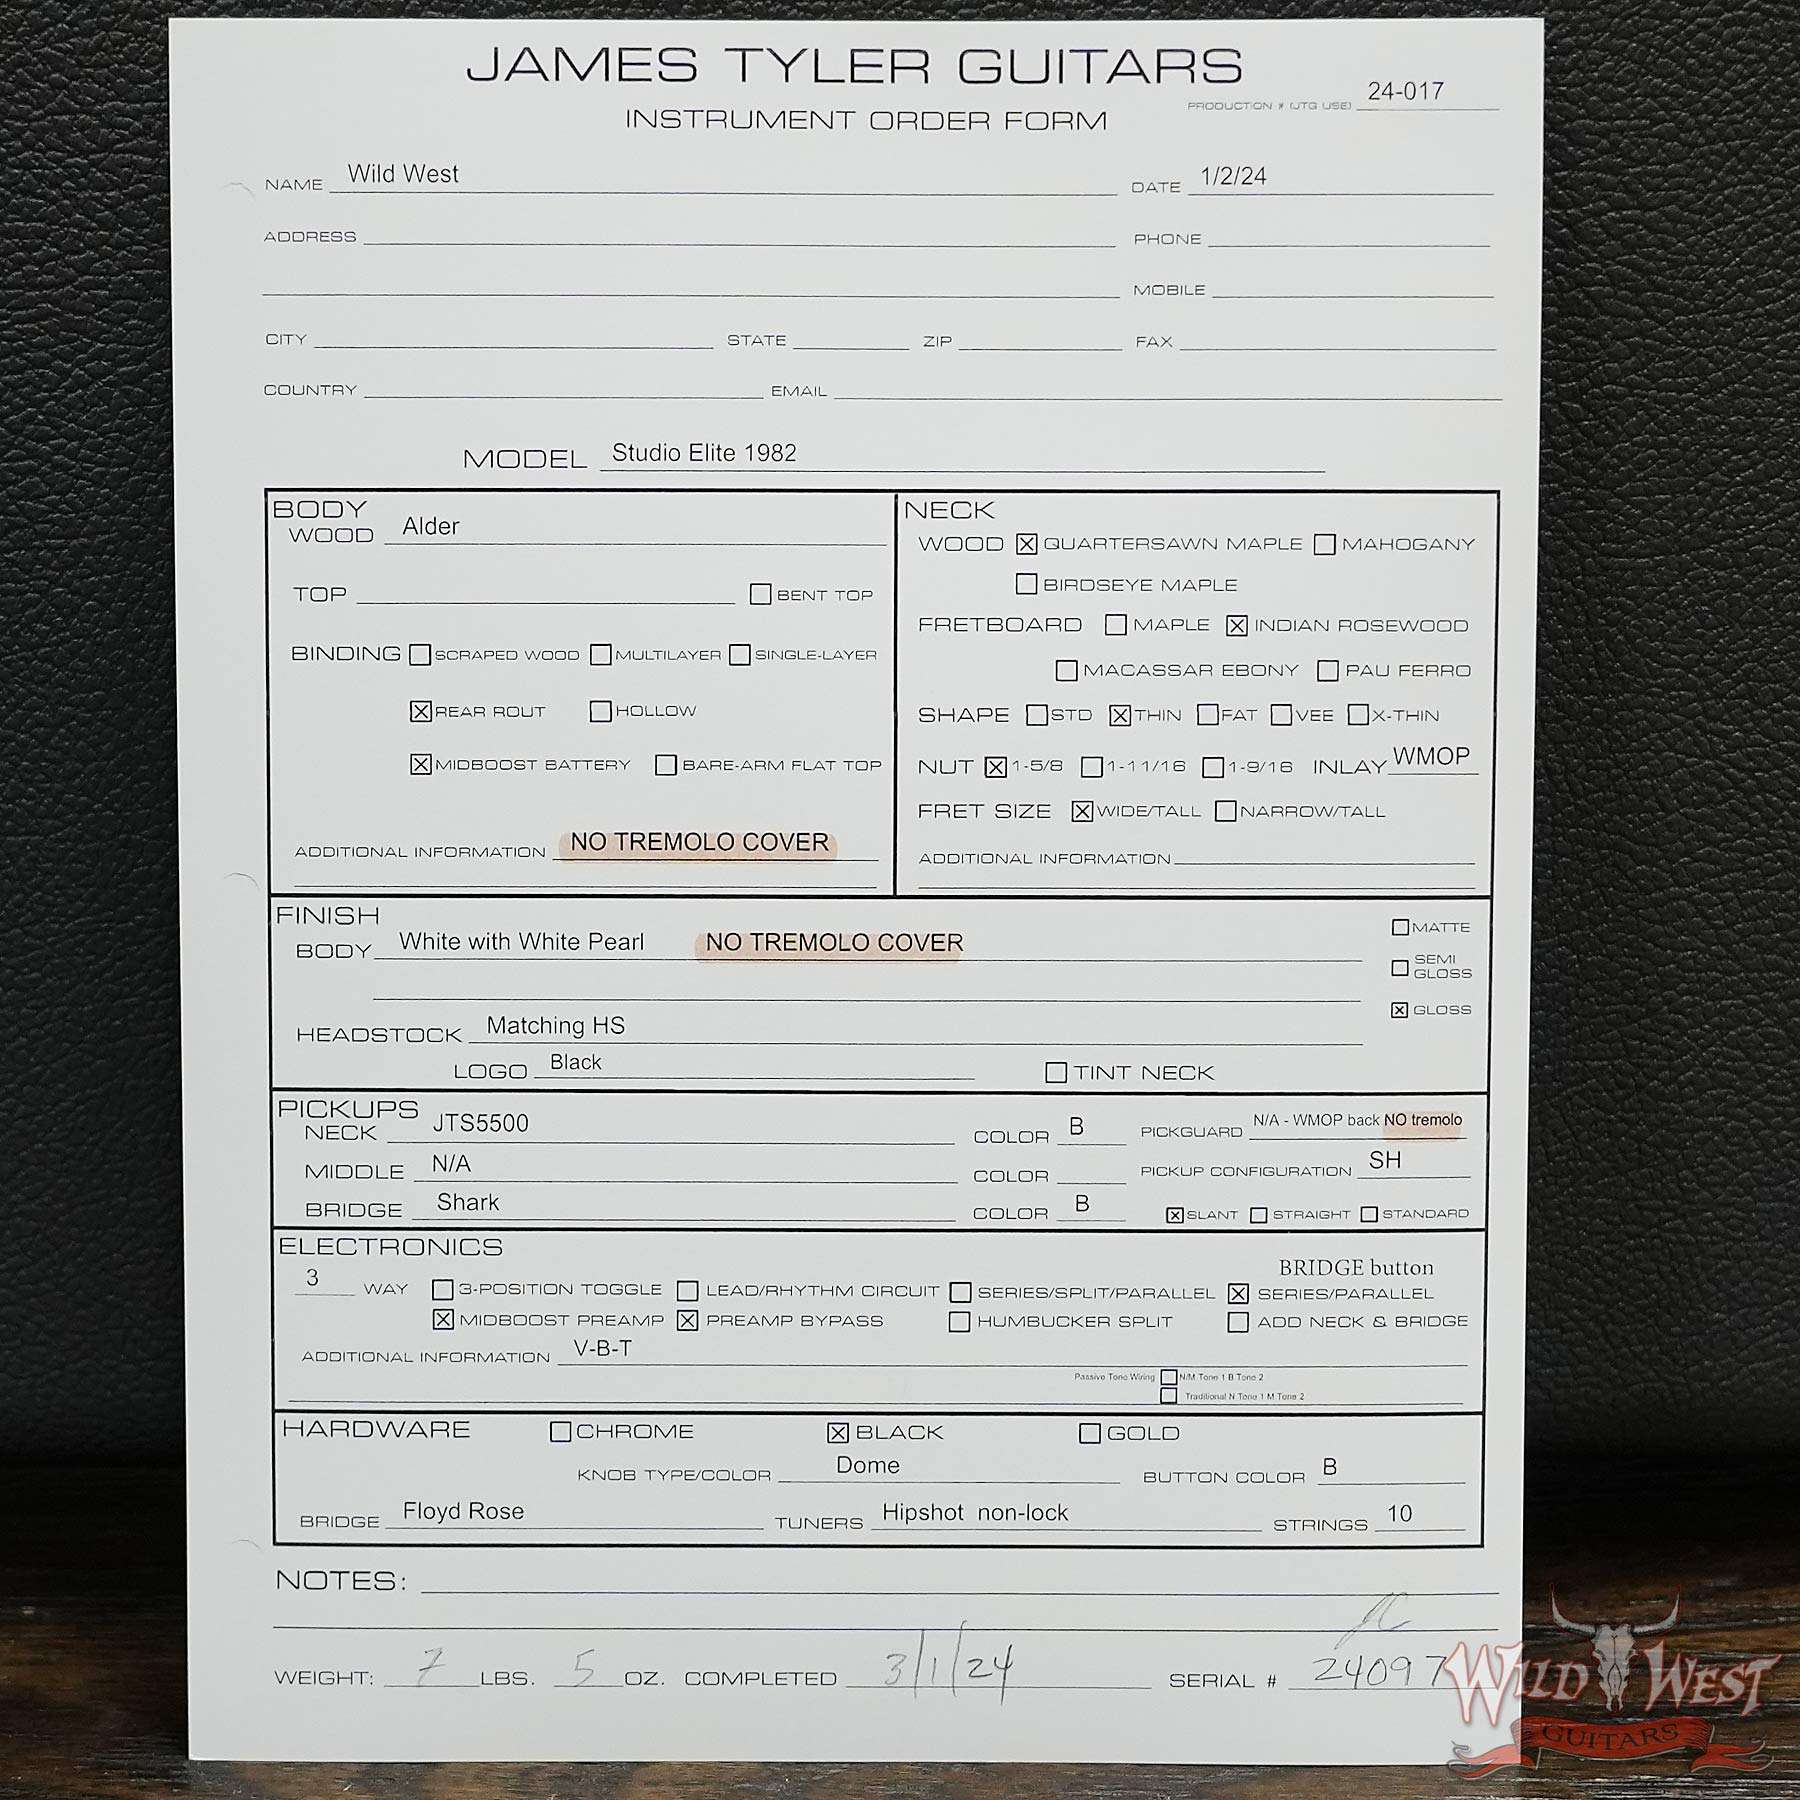 JAMES TYLER GUITARS
INSTRUMENT ORDER FORM
PRODUCTION # (JTG USE) 24-017
NAME Wild West DATE 1/2/24
ADDRESS PHONE
MOBILE
CITY STATE ZIP FAX
COUNTRY EMAIL
MODEL Studio Elite 1982
BODY
WOOD Alder
TOP BENT TOP
BINDING SCRAPED WOOD MULTILAYER SINGLE-LAYER
REAR ROUT HOLLOW
MIDBOOST BATTERY BARE-ARM FLAT TOP
ADDITIONAL INFORMATION NO TREMOLO COVER
NECK
WOOD QUARTERSAWN MAPLE MAHOGANY
BIRDSEYE MAPLE
FRETBOARD MAPLE INDIAN ROSEWOOD
MACASSAR EBONY PAU FERRO
SHAPE STD THIN FAT VEE X-THIN
NUT 1-5/8 1-11/16 1-9/16 INLAY WMOP
FRET SIZE WIDE/TALL NARROW/TALL
ADDITIONAL INFORMATION
FINISH
BODY White with White Pearl NO TREMOLO COVER
MATTE
SEMI
GLOSS
GLOSS
HEADSTOCK Matching HS
LOGO Black TINT NECK
PICKUPS
NECK JTS5500 COLOR B PICKGUARD N/A - WMOP back NO tremolo
MIDDLE N/A COLOR PICKUP CONFIGURATION SH
BRIDGE Shark COLOR B SLANT STRAIGHT STANDARD
ELECTRONICS
BRIDGE button
3 WAY 3-POSITION TOGGLE LEAD/RHYTHM CIRCUIT SERIES/SPLIT/PARALLEL SERIES/PARALLEL
MIDBOOST PREAMP PREAMP BYPASS HUMBUCKER SPLIT ADD NECK & BRIDGE
ADDITIONAL INFORMATION V-B-T
Passive Tone Wiring N/M Tone 1 B Tone 2
Traditional N Tone 1 M Tone 2
HARDWARE CHROME BLACK GOLD
KNOB TYPE/COLOR Dome BUTTON COLOR B
BRIDGE Floyd Rose TUNERS Hipshot non-lock STRINGS 10
NOTES:
WEIGHT: 7 LBS. 5 OZ. COMPLETED 3/1/24 SERIAL # 24097
WILD WEST
GUITARS